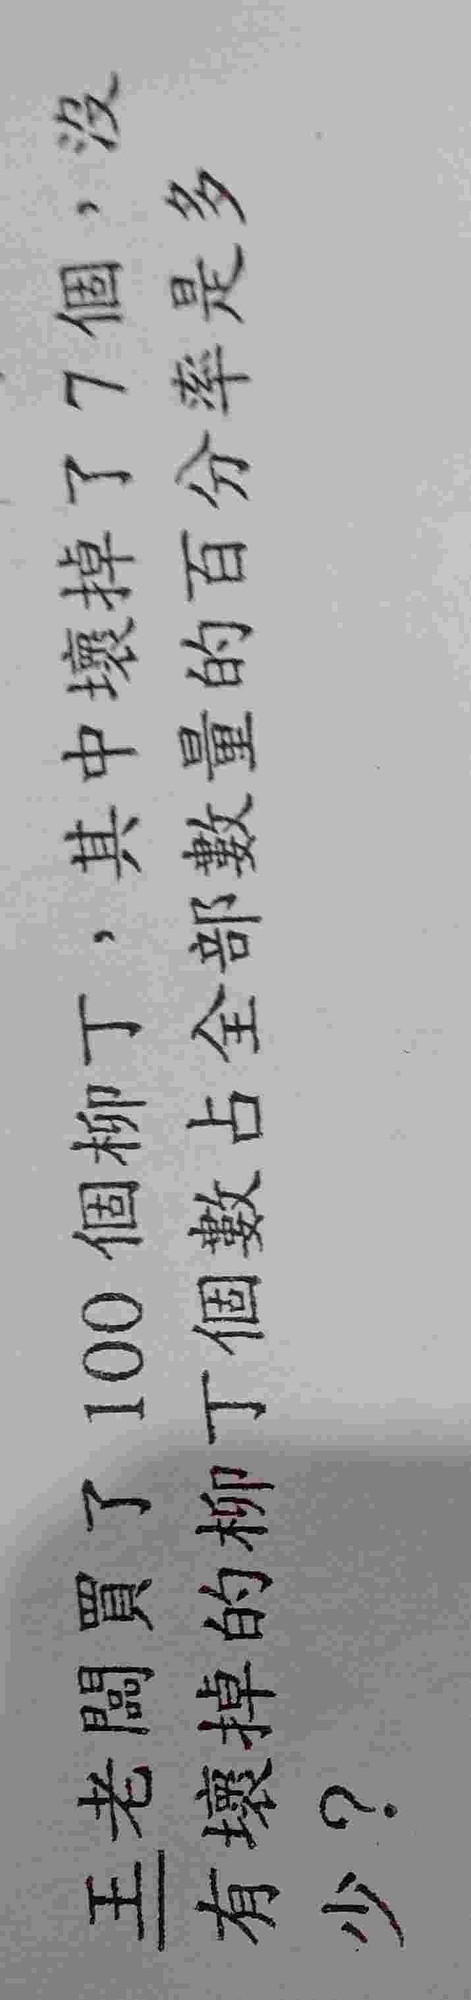 王老闆買了 100 個柳丁，其中壞掉了 7 個，沒
有壞掉的柳丁個數占全部數量的百分率是多
少？